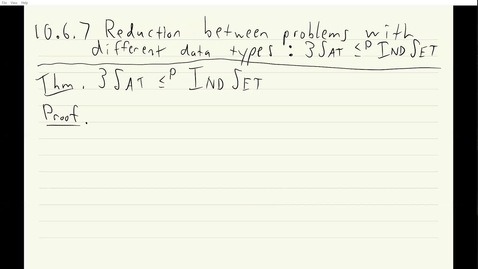 10.6.7 Reduction between problems with
different data types : 3SAT ≤ᴾ INDSET
Thm. 3SAT ≤ᴾ INDSET
Proof.